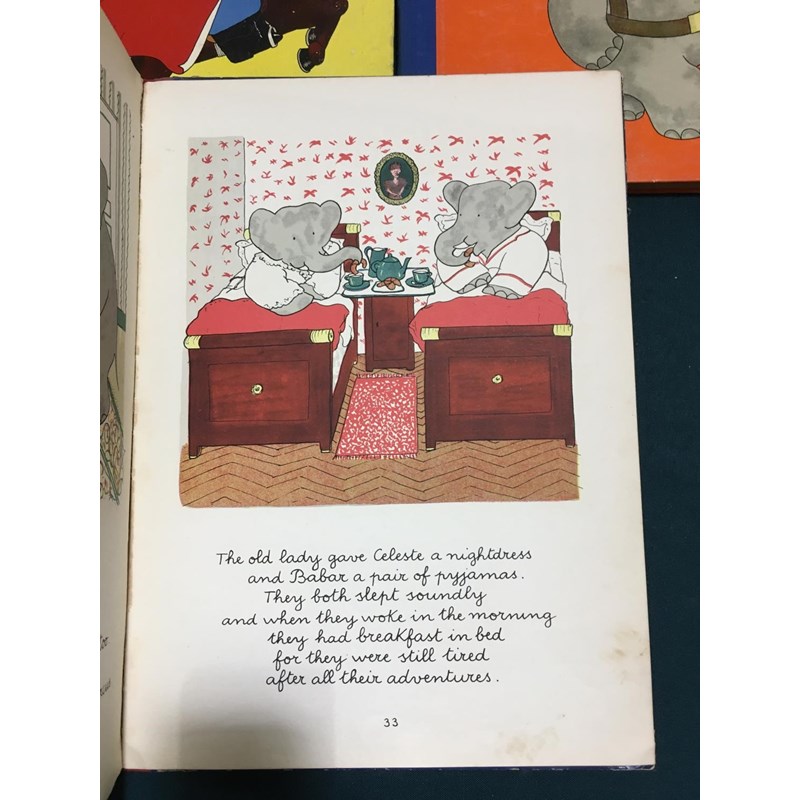 The old lady gave Celeste a nightdress
and Babar a pair of pyjamas.
They both slept soundly
and when they woke in the morning
they had breakfast in bed
for they were still tired
after all their adventures.
33